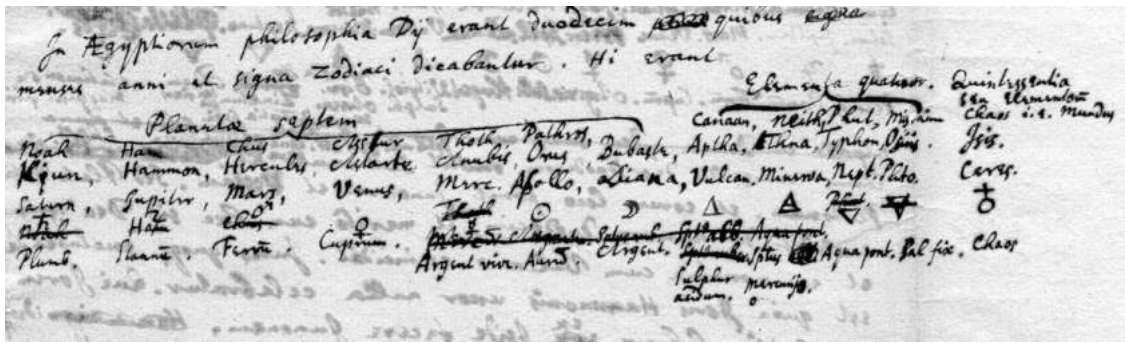 In Ægyptiorum philosophia Dij erant duodecim quibus
menses anni et signa Zodiaci dicabantur. Hi erant
Planetæ septem Elementa quatuor. Quintessentia
seu elementorū Chaos i.e. Mundus
Noah Ham Chus Thoth Pathros, Canaan, Neith, Phut, Mizraim
Hammon, Hercules, Astarte Anubis, Orus, Bubaste, Aptha, Ethna, Typhon, Osiris. Isis.
Saturn, Jupiter, Mars, Venus, Merc. Apollo, Diana, Vulcan, Minerva, Nept. Pluto. Ceres.
Thoth ☉ ☽ △ 🜁 ▽ 🜃 ♁
Plumb. Stannū. Ferrū. Cuprum. Argent vive. Aurū Argent. Sptus Aqua pont. Sal fix. Chaos
Sulphur mercurijs.
acidum.